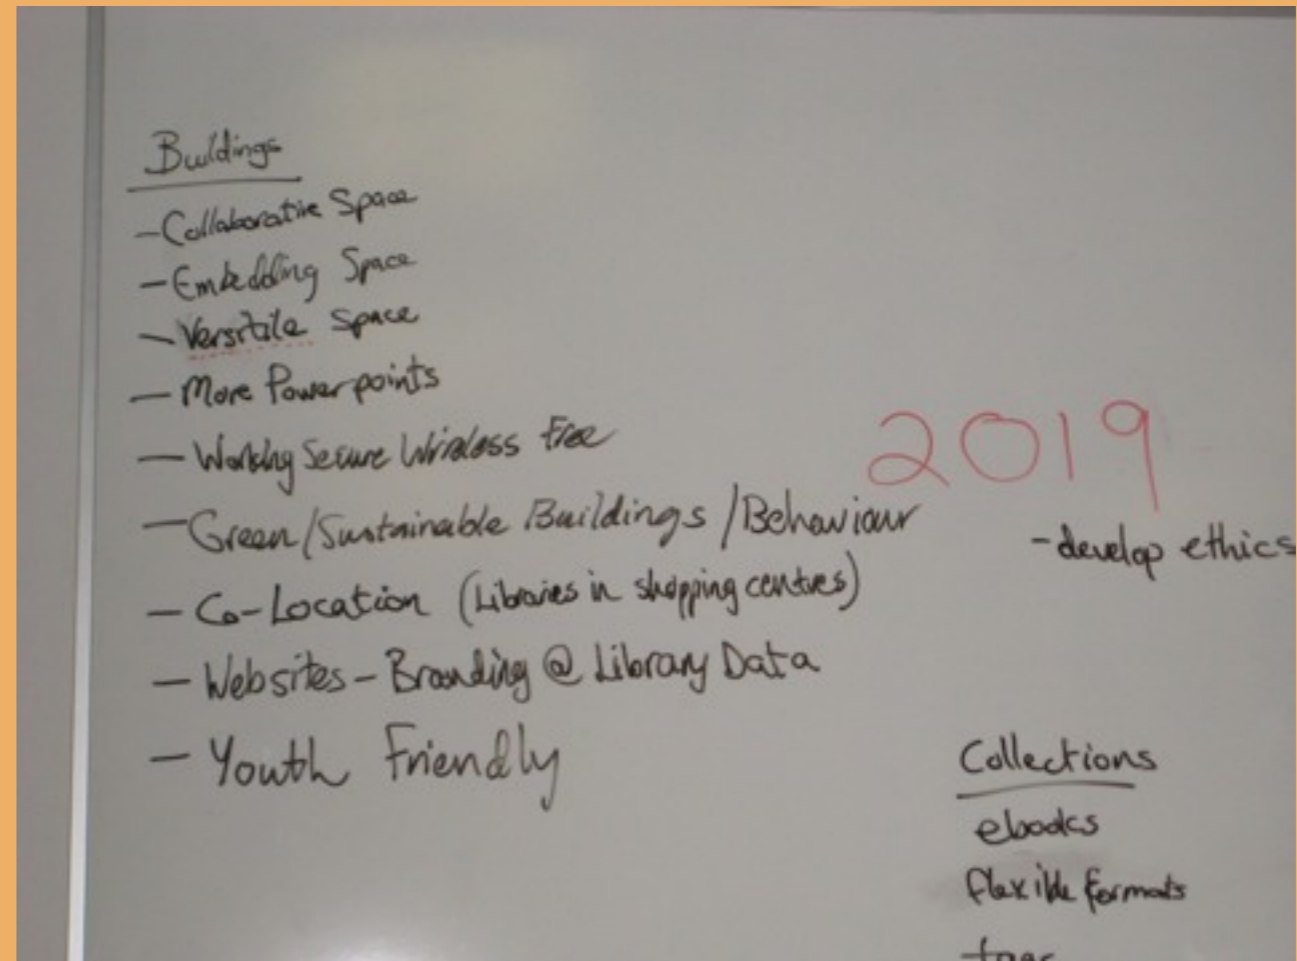 Buildings
- Collaborative Space
- Embedding Space
- Versitile Space
- More Powerpoints
- Working Secure Wireless Free
- Green/Sustainable Buildings/Behaviour
- Co-Location (Libraries in shopping centres)
- Websites - Branding @ Library Data
- Youth Friendly
2019
- develop ethics
Collections
ebooks
flexible formats